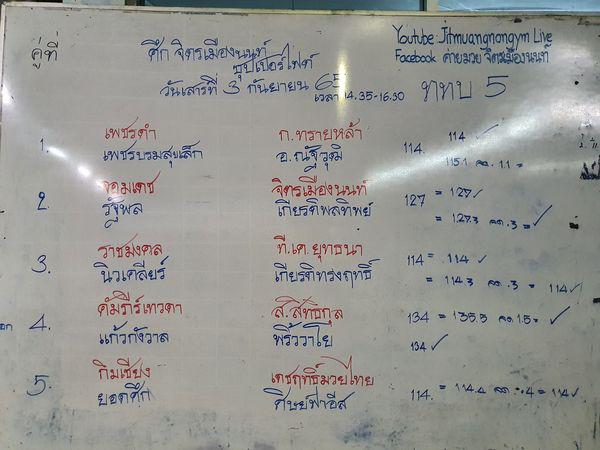 คู่ที่
ศึก จิตรเมืองนนท์
ซุปเปอร์ไฟท์
วันเสาร์ที่ 3 กันยายน 65
เวลา 14.35-16.30
Youtube: Jitmuangnongym Live
Facebook ค่ายมวย จิตรเมืองนนท์
ททบ 5
1. เพชรดำ ก.ทรายหล้า 114. 114 ✓
เพชรบรมสุขเล็ก อ.ณัฐวุฒิ 115.1 ลด 1.1 =
2. จอมเดช จิตรเมืองนนท์ 127 = 127 ✓
รัฐพล เกียรติพลทิพย์ = 127.3 ลด .3 = ✓
3. ราชมงคล ที.เค.ยุทธนา 114 = 114 ✓
นิวเคลียร์ เกียรติทรงฤทธิ์ = 114.3 ลด .3 = 114 ✓
4. คัมภีร์เทวดา ส.สิทธกุล 134 = 135.5 ลด 1.5 = ✓
แก้วกังวาล พริ้ววาโย 134 ✓
5. กิมเชียง เดชฤทธิ์มวยไทย 114. = 114.4 ลด .4 = 114 ✓
ยอดศึก ศิษย์ฟาอีส